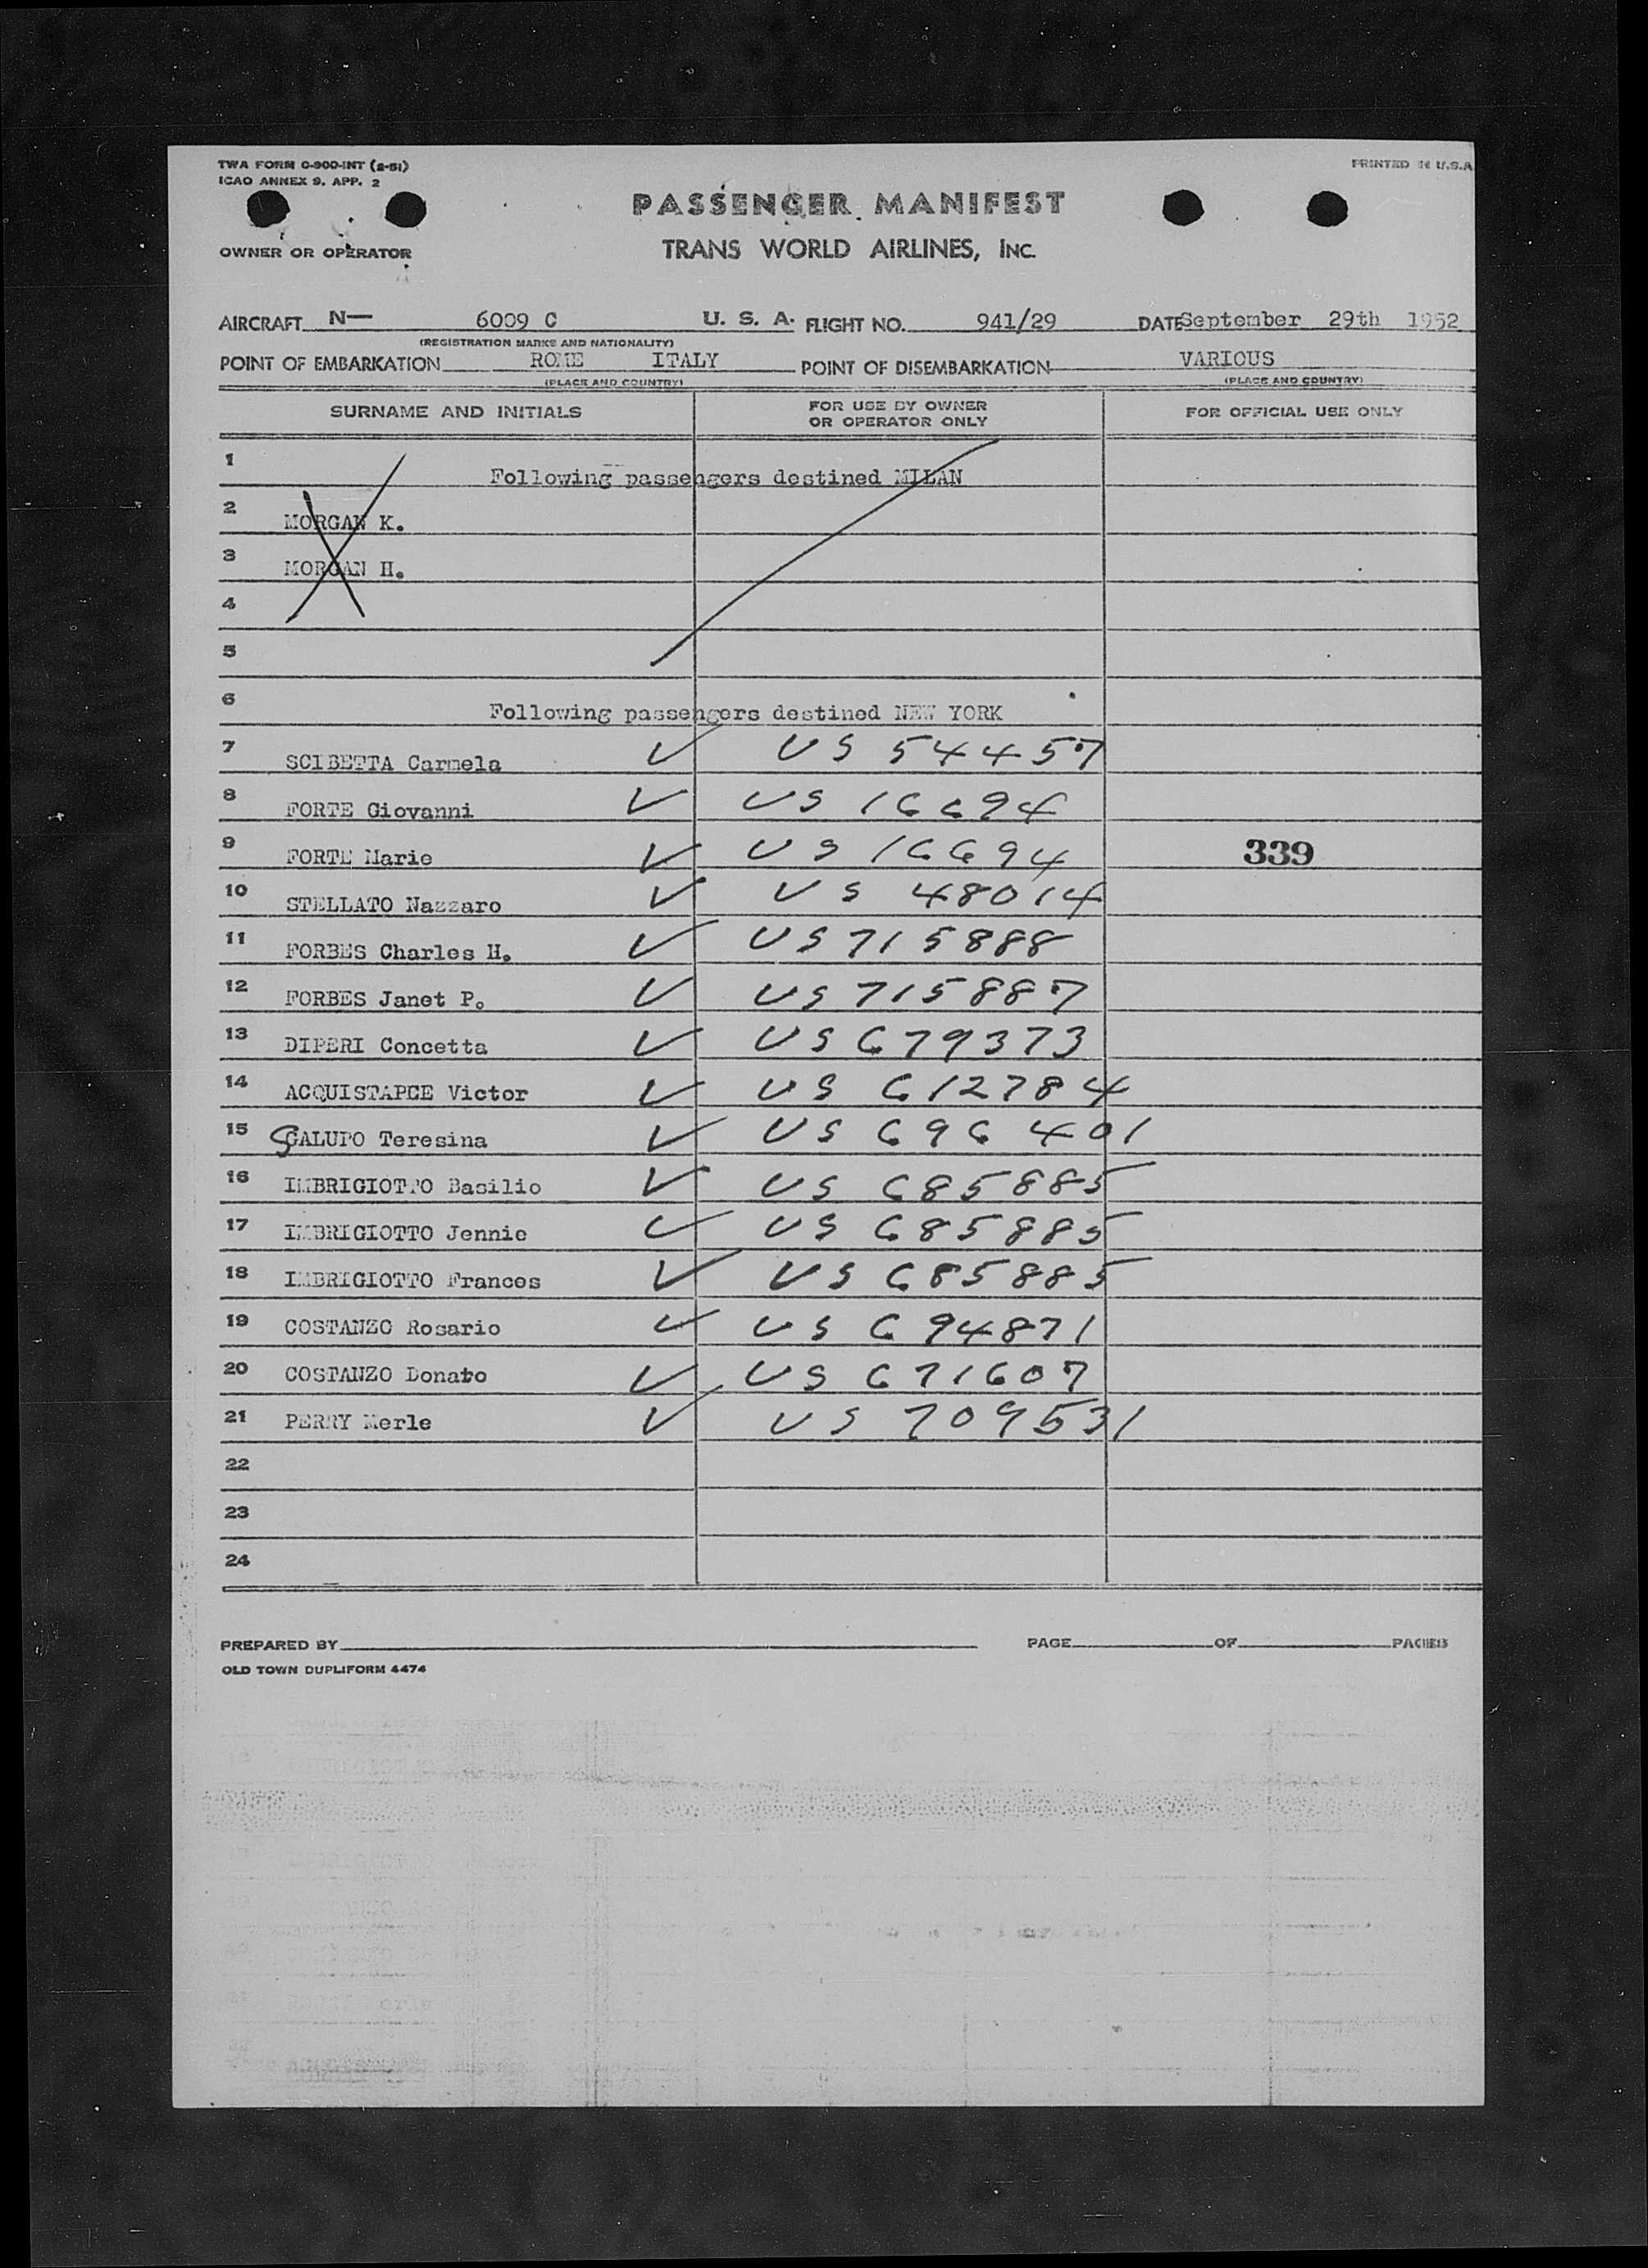 TWA FORM C-900-INT (2-51)
PRINTED IN U.S.A
ICAO ANNEX 9, APP. 2
PASSENGER MANIFEST
OWNER OR OPERATOR
TRANS WORLD AIRLINES, INC.
AIRCRAFT N— 6009 C U. S. A. FLIGHT NO. 941/29 DATE September 29th 1952
(REGISTRATION MARKS AND NATIONALITY)
POINT OF EMBARKATION ROME ITALY POINT OF DISEMBARKATION VARIOUS
(PLACE AND COUNTRY) (PLACE AND COUNTRY)
SURNAME AND INITIALS FOR USE BY OWNER OR OPERATOR ONLY FOR OFFICIAL USE ONLY
1 Following passengers destined MILAN
2 MORGAN K.
3 MORGAN H.
4
5
6 Following passengers destined NEW YORK
7 SCIBETTA Carmela ✓ US 54457
8 FORTE Giovanni ✓ US 16694
9 FORTE Marie ✓ US 16694 339
10 STELLATO Nazzaro ✓ US 48014
11 FORBES Charles H. ✓ US 715888
12 FORBES Janet P. ✓ US 715887
13 DIPERI Concetta ✓ US 679373
14 ACQUISTAPCE Victor ✓ US 612784
15 GALUPO Teresina ✓ US 696401
16 IMBRIGIOTTO Basilio ✓ US 685885
17 IMBRIGIOTTO Jennie ✓ US 685885
18 IMBRIGIOTTO Frances ✓ US 685885
19 COSTANZO Rosario ✓ US 694871
20 COSTANZO Donato ✓ US 671607
21 PERRY Merle ✓ US 709531
22
23
24
PREPARED BY PAGE OF PAGES
OLD TOWN DUPLIFORM 4474